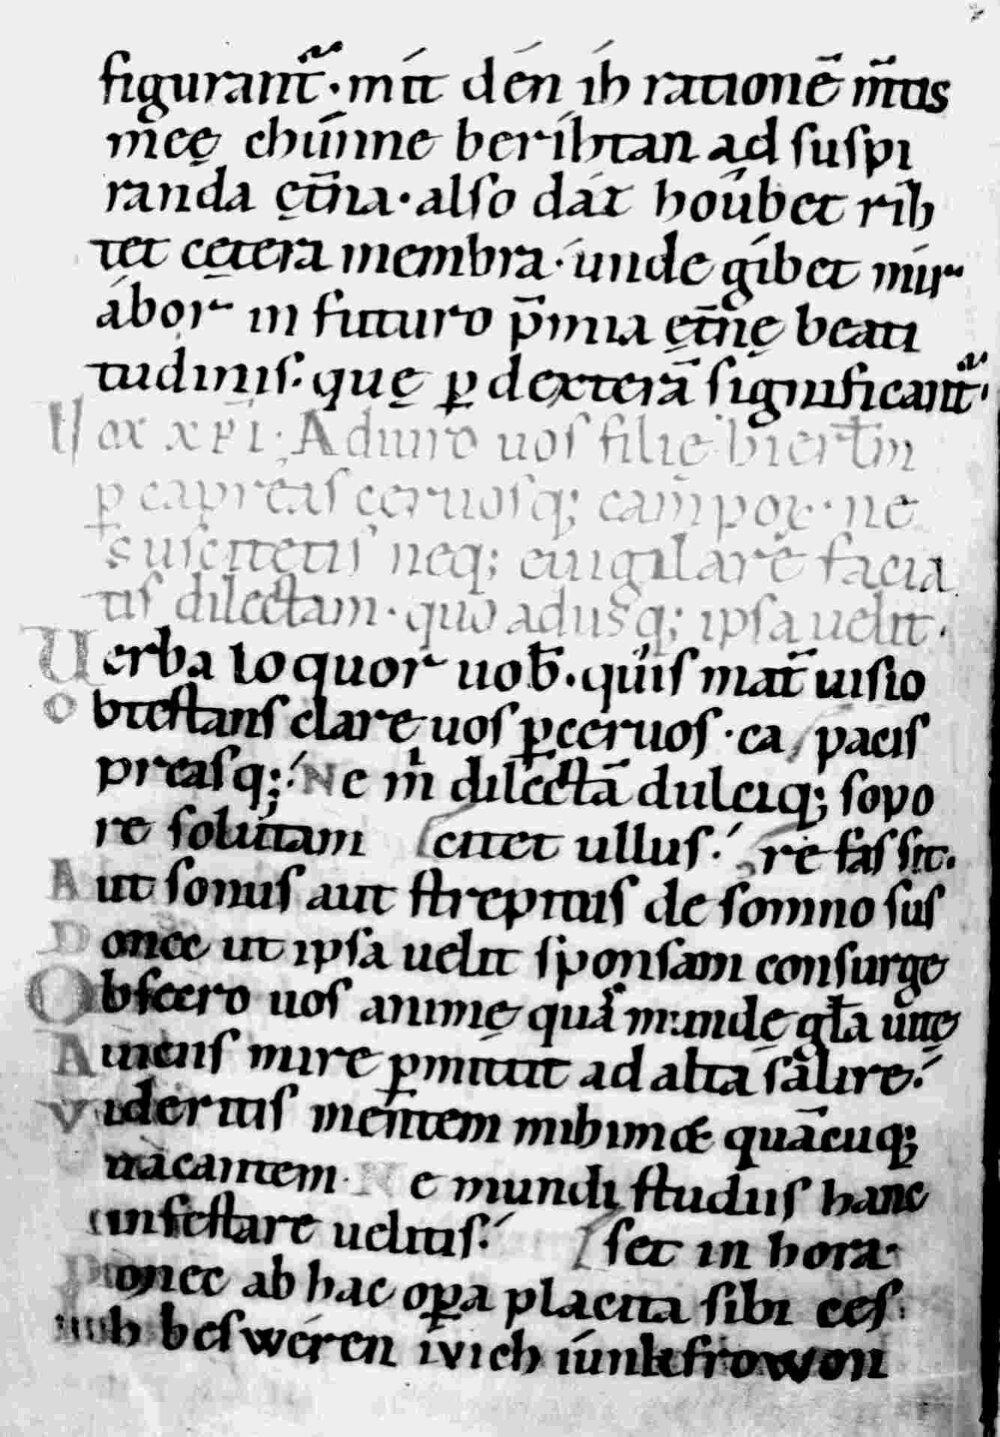 figurant᷑. mít dén ih rationē m̄tis
meę chúnne beríhtan ad suspi
randa ęt̄na. also dáz hoúbet rih
tet cetera membra. únde gíbet mír
ábor in futuro p̄mia ęt̄nę beati
tudinis. quę ꝑ dexterā significant᷑.
Vox xp̄i. Adiuro uos filię hierl̄m
ꝑ capreas ceruosq; campoꝝ. ne
suscitetis neq; euigilare facia
tis dilectam. quo adusq; ipsa uelit.
Uerba loquor uob̄. quis mat̄ uisio
Obtestans clare uos ꝑ ceruos. ca pacis
preasq; Ne m̄ dilectā dulciq; sopo
re solutam citet ullus. re fas sit.
Aut sonus aut strepitus de somno sus
Donec ut ipsa uelit sponsam consurge
Obsecro uos animę quā mundę gl̄a
A mire ꝑmittit ad alta salire.
Videritis mentem mihimet quācuq;
uacantem. Ne mundi studiis hanc
infestare uelitis. set in hora.
Donec ab hac oꝑa placita sibi ces
ih besweren ivich iúnkfrowon